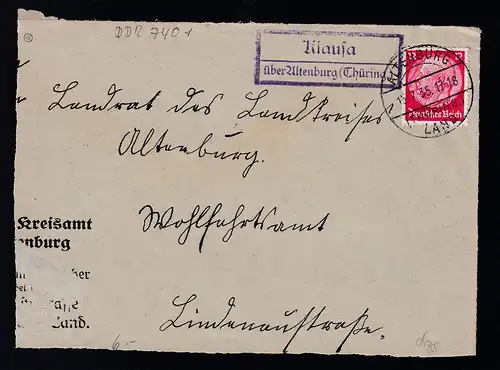 DDR 7401
Klausa
über Altenburg (Thüring
ALTENBURG
35.17-18
LAND
Deutsches Reich
Landrat des Landkreises
Altenburg.
Wohlfahrtsamt
Lindenaustraße.
Kreisamt
enburg
her
Land.
6,-